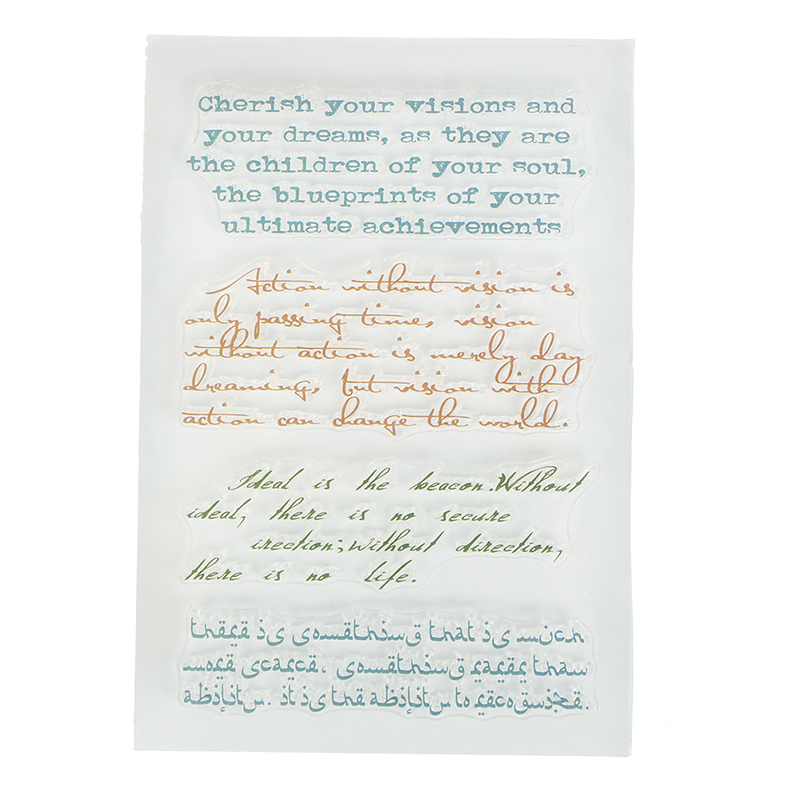 Cherish your visions and
your dreams, as they are
the children of your soul,
the blueprints of your
ultimate achievements
Action without vision is
only passing time, vision
without action is merely day
dreaming, but vision with
action can change the world.
Ideal is the beacon.Without
ideal, there is no secure
irection;without direction,
there is no life.
there is something that is much
more scarce. something rarer than
ability. it is the ability to recognize.